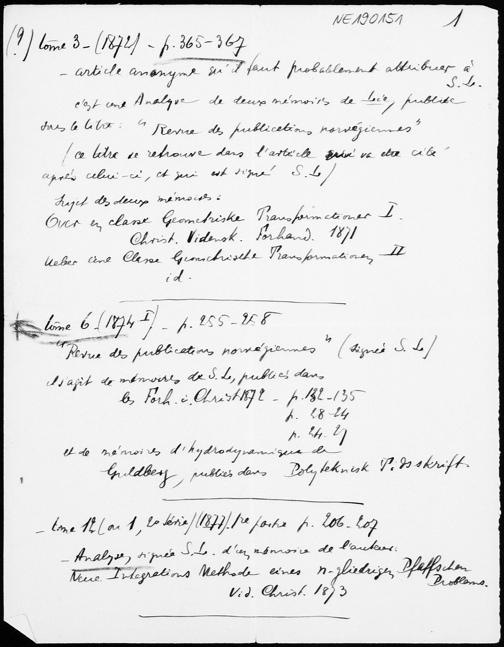 NE190151
1
(9) tome 3 - (1872) - p. 365-367
- article anonyme qu'il faut probablement attribuer à
S. Le.
c'est une Analyse de deux mémoires de Lie, publiée
sous le titre : "Revue des publications norvégiennes"
(ce titre se retrouve dans l'article qui va être cité
après celui-ci, et qui est signé S. L.)
Sujet des deux mémoires :
Over en classe Geometriske Transformationer I.
Christ. Vidensk. Forhand. 1871
Ueber eine Classe Geometrischer Transformationen II
id.
tome 6 - (1874 I) - p. 255-258
"Revue des publications norvégiennes" (signée S. Le)
il s'agit de mémoires de S. L., publiés dans
les Forh. i. Christ 1872 - p. 132-135
p. 28-24
p. 24-27
et de mémoires d'hydrodynamique de
Guldberg, publiés dans Polyteknisk Tidsskrift.
- tome 12 (ou 1, 2e série) (1877) 1re partie p. 206-207
- Analyse, signée S. L. d'un mémoire de l'auteur.
Neue Integrations Methode eines n-gliedrigen Pfaffschen
Problems.
Vid. Christ. 1873